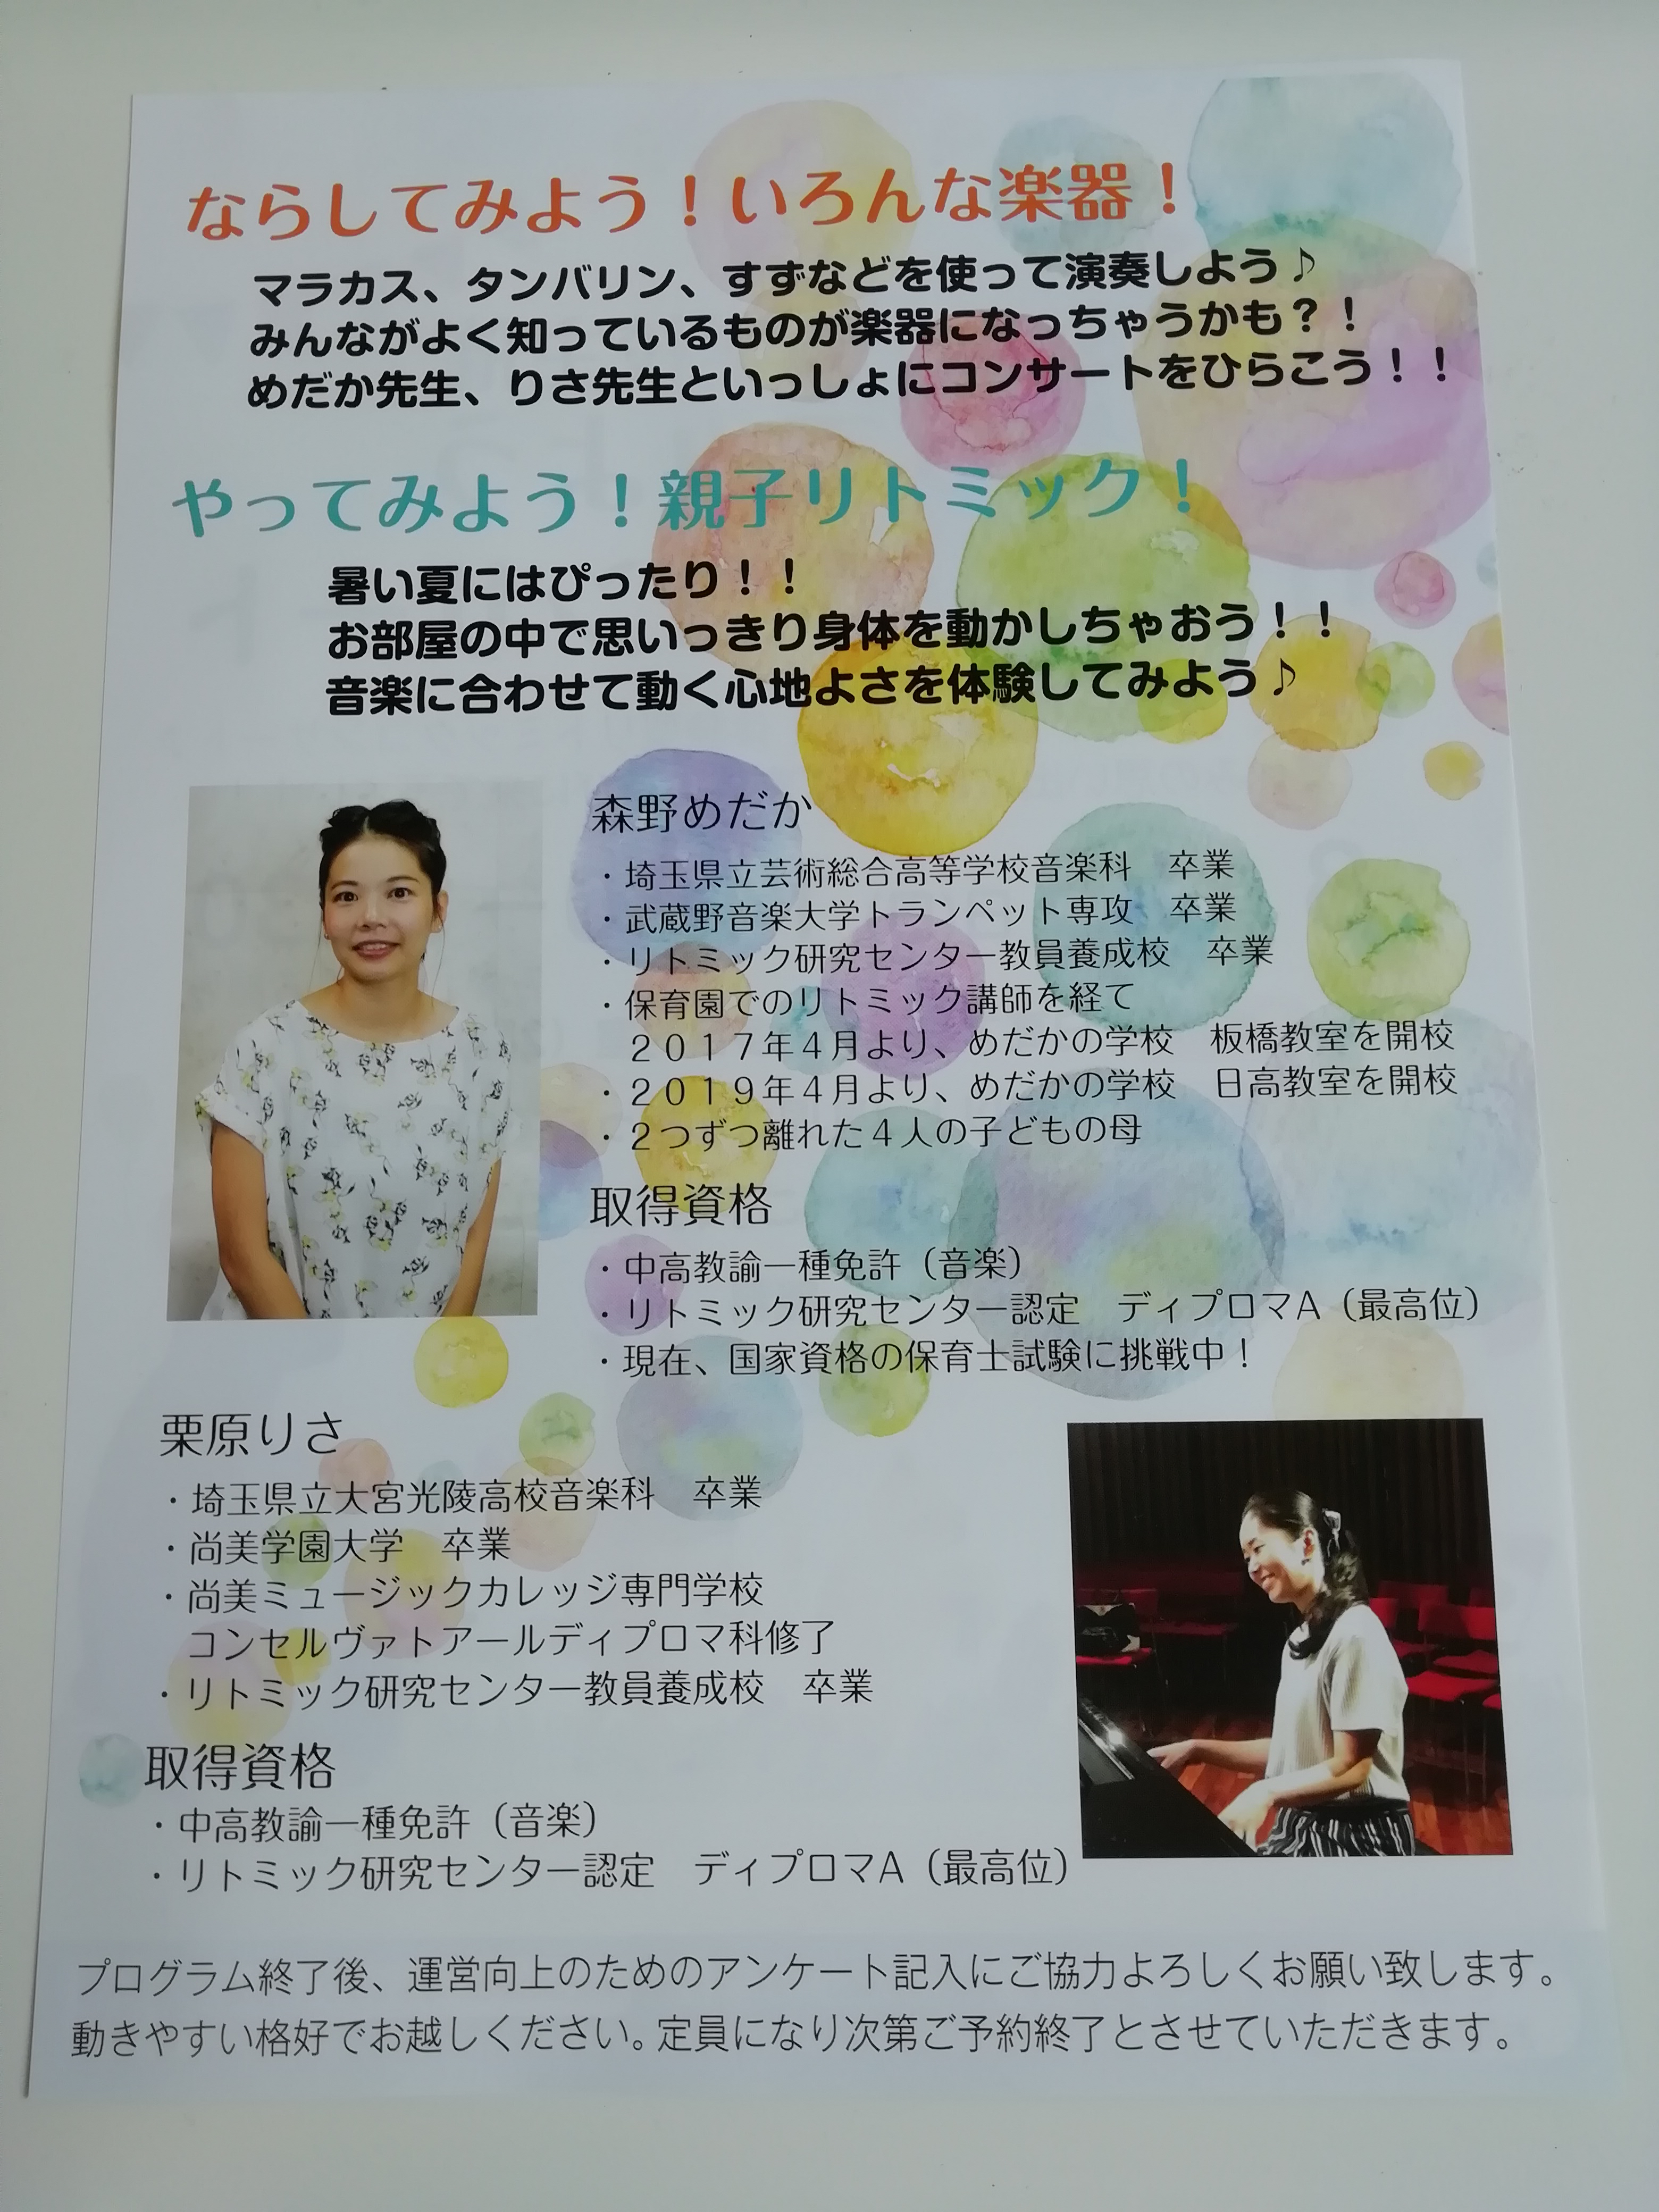 ならしてみよう！いろんな楽器！
マラカス、タンバリン、すずなどを使って演奏しよう♪
みんながよく知っているものが楽器になっちゃうかも？！
めだか先生、りさ先生といっしょにコンサートをひらこう！！
やってみよう！親子リトミック！
暑い夏にはぴったり！！
お部屋の中で思いっきり身体を動かしちゃおう！！
音楽に合わせて動く心地よさを体験してみよう♪
森野めだか
・埼玉県立芸術総合高等学校音楽科　卒業
・武蔵野音楽大学トランペット専攻　卒業
・リトミック研究センター教員養成校　卒業
・保育園でのリトミック講師を経て
２０１７年４月より、めだかの学校　板橋教室を開校
・２０１９年４月より、めだかの学校　日高教室を開校
・２つずつ離れた４人の子どもの母
取得資格
・中高教諭一種免許（音楽）
・リトミック研究センター認定　ディプロマA（最高位）
・現在、国家資格の保育士試験に挑戦中！
栗原りさ
・埼玉県立大宮光陵高校音楽科　卒業
・尚美学園大学　卒業
・尚美ミュージックカレッジ専門学校
コンセルヴァトアールディプロマ科修了
・リトミック研究センター教員養成校　卒業
取得資格
・中高教諭一種免許（音楽）
・リトミック研究センター認定　ディプロマA（最高位）
プログラム終了後、運営向上のためのアンケート記入にご協力よろしくお願い致します。
動きやすい格好でお越しください。定員になり次第ご予約終了とさせていただきます。